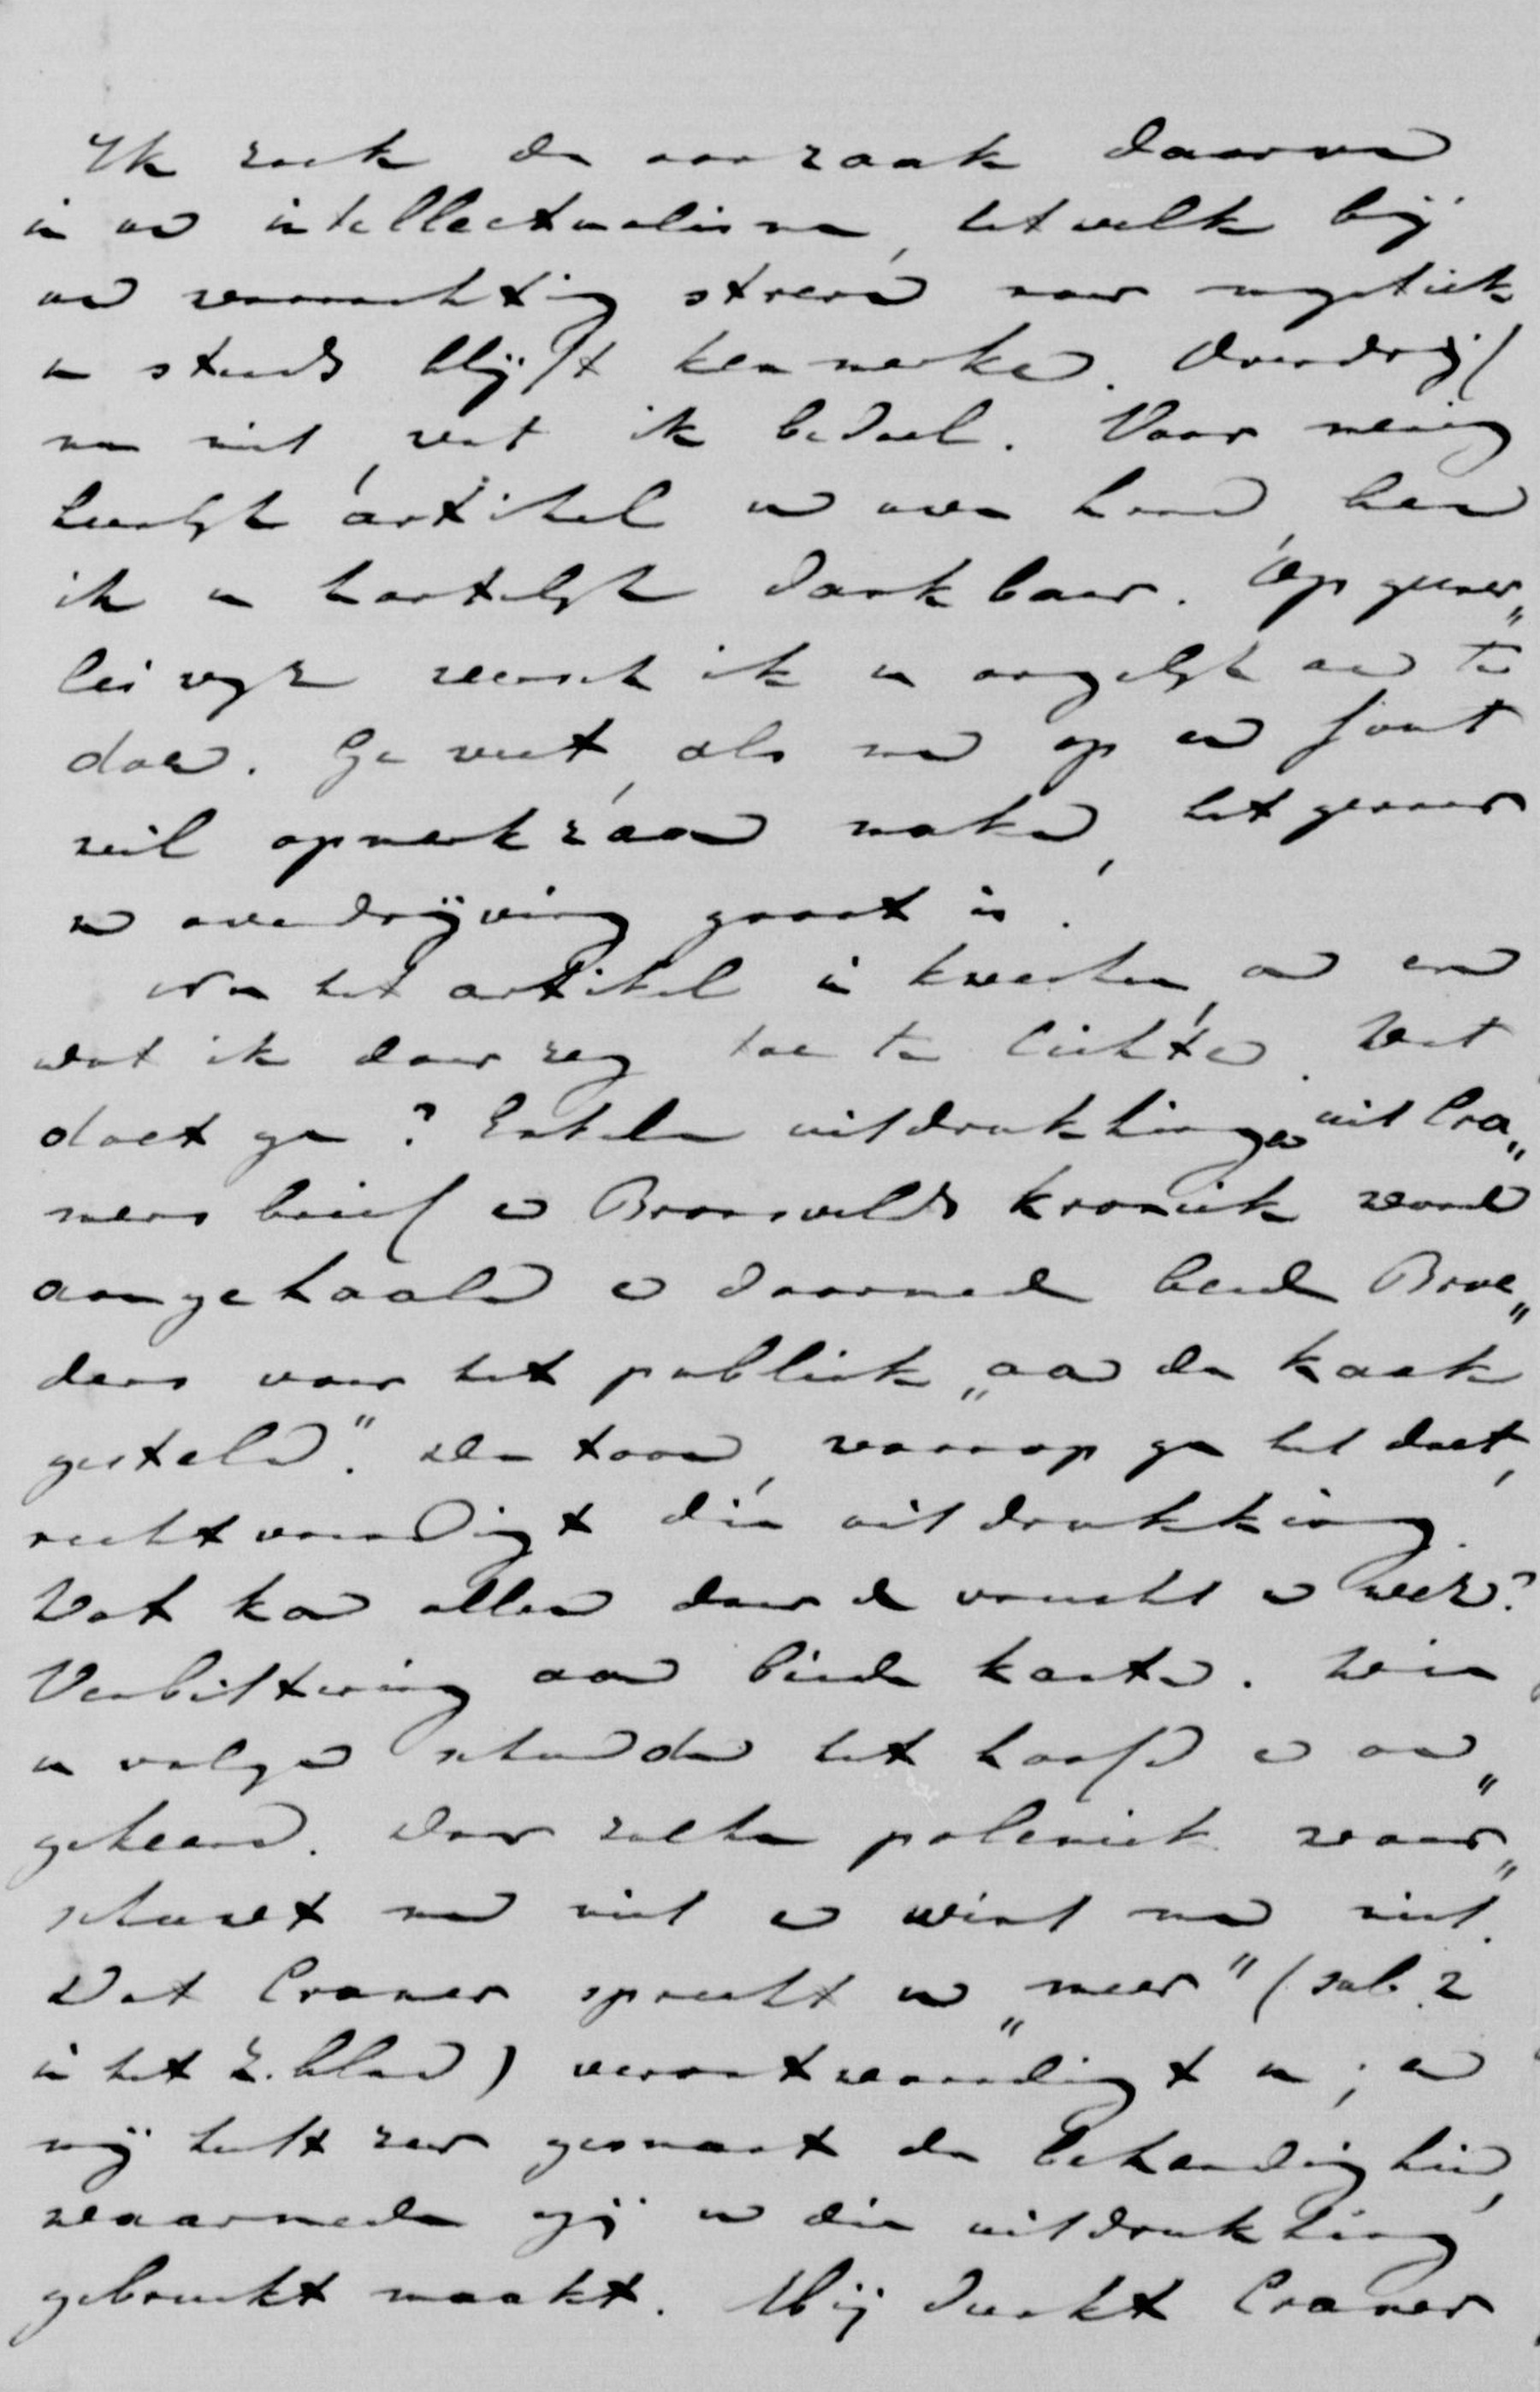 Ik zoek de oorzaak daarvan
in uw intellectualisme, hetwelk bij
uw waarachtig streven naar mystiek
u steeds blijft kenmerken. Overdrijf
nu niet, wat ik bedoel. Voor menig
heerlijk artikel van uwe hand, ben
ik u hartelijk dankbaar. Op geener„
lei wijze wensch ik u ongelijk aan te
doen. Ge weet, als men op een fout
wil opmerkzaam maken, het gevaar
van overdrijving groot is.
Nu het artikel in kwestie, om even
wat ik daar zeg toe te lichten. Wat
doet ge? Enkele uitdrukkingen uit Cra„
mers brief en Bronsvelds kroniek worden
aangehaald en daarmede beide Broe„
ders voor het publiek „aan de kaak
gesteld". De toon, waarop ge het doet,
rechtvaardigt die uitdrukking.
Wat kan alleen daarvan de vrucht wezen?
Verbittering aan beide kanten. Wie
u volgen schudden het hoofd en om„
gekeerd. Door zulke polemiek waar„
schuwt men niet en wint men niet.
Dat Cramer spreekt van „meer" (sub 2
in het Z. blad) verontwaardigt u; en
mij heeft zeer gesmart de behendigheid,
waarmede gij van die uitdrukking
gebruikt maakt. Mij dunkt Cramer